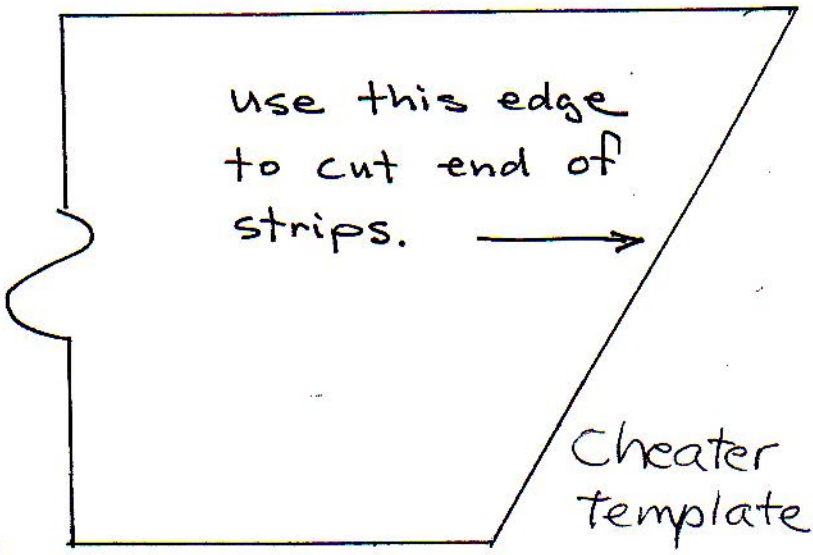 use this edge
to cut end of
strips.
Cheater
template